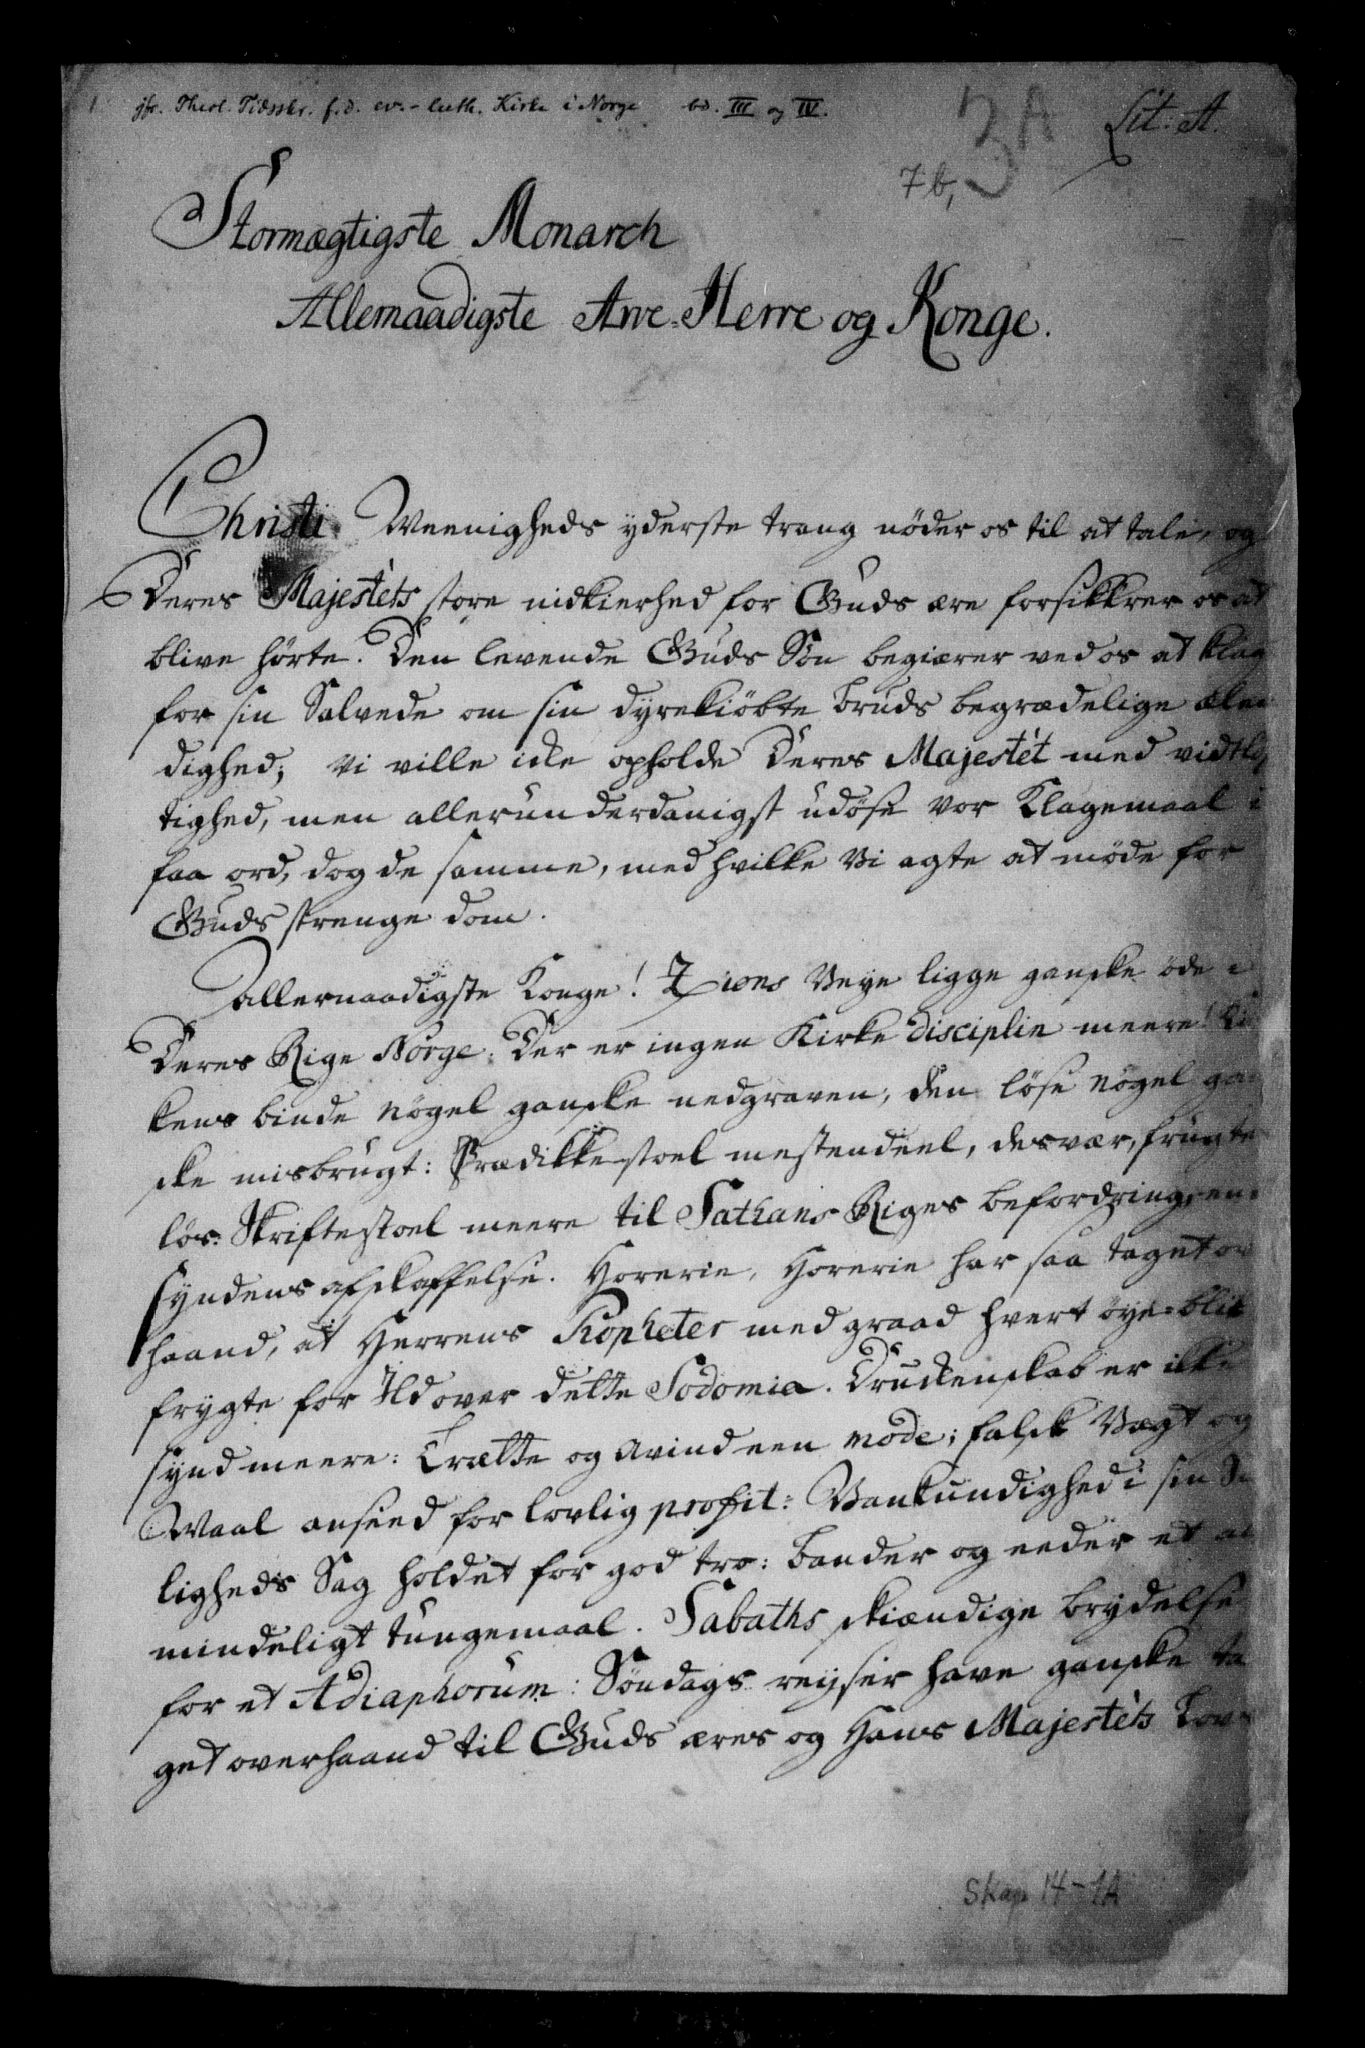 jfr. Theol. Tidsskr. f. d. ev.-luth. Kirke i Norge bd. III og IV.
3A
Lit. A.
7b,
Stormægtigste Monarch
Allernaadigste Arve-Herre og Konge.
Christi Meenigheds yderste trang nöder os til at tale, og
Deres Majestets store nidkierhed for Guds ære forsikkrer os at
blive hörte. Den levende Guds Sön begiærer ved os at klag
for sin Salvede om sin dyrekiöbte bruds begrædelige ælen
dighed; Vi ville icke opholde Deres Majestet med vidtlöf
tighed, men allerunderdanigst udöse vor Klagemaal i
faa ord, dog de samme, med hvilke Vi agte at möde for
Guds strenge dom.
Allernaadigste Konge! Zions Veye ligge ganske öde i
Deres Rige Norge: Der er ingen Kirke disciplin meere! Kir
kens binde nögel ganske nedgraven, den löse nögel gan
ske misbrugt: Prædikkestoel mestendeel, desvær, frugte
lös: Skriftestoel meere til Sathans Riges befordring, en
syndens afskaffelse. Horerie, Horerie har saa taget ov
haand, at Herrens Propheter med graad hvert öye-blik
frygte for Ild over dette Sodomia. Druckenskab er ikke
synd meere: Trætte og Avind een mode; falsk Vægt og
Maal anseed for lovlig profit: Vankundighed i sin Sa
ligheds Sag holdet for god tro: bander og eeder et al
mindeligt tungemaal. Sabaths skiændige brydelse
for et Adiaphorum: Söndags reyser have ganske ta
get overhaand til Guds æres og Hans Majestets Lov
Skap 14-1A